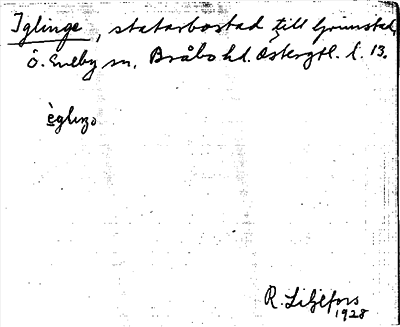 Iglinge, statarbostad till Grimstad,
Ö. Eneby sn, Bråbo hd. Östergtl. l. 13.
èglıŋə
R. Liljefors
1928